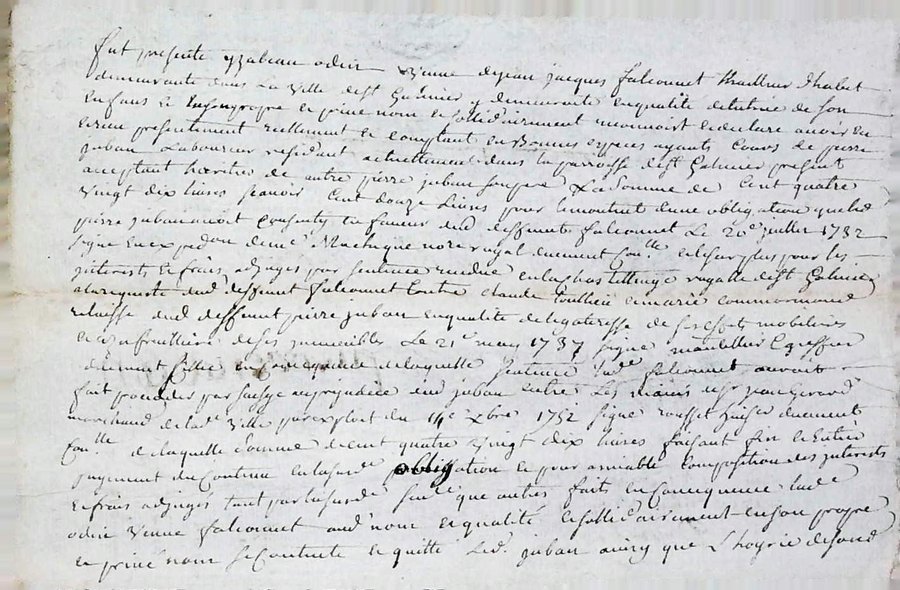 fut presente yzabeau odin veuve de jean jacques falconnet tailleur d'habit
demeurante dans la ville de st Galmier y demeurante en qualité de tutrice de son
Enfans et en son propre et privé nom et sollidairement reconnoist et declare avoir eu
et reçu presentement reellement et comptant en bonnes especes ayants Cours de pierre
juban Laboureur residant actuellement dans la parroisse de st Galmier present
acceptant heritier de autre pierre juban son pere La Somme de Cent quatre
vingt dix livres scavoir Cent douze livres pour le montant d'une obligation que led
pierre juban avoit Consenty en faveur dud deffunt falconnet Le 20e juillet 1732
signé en expedon de me notre royal duement Conllé et le surplus pour les
jnterests et frais adjugés par sentence rendue en la chastellenie royalle de st Galmier
a la requiste dud deffunt falconnet Contre claude
relaissé dud deffunt pierre juban en qualité de legateresse de ses effets mobiliers
et usufruitiaire de ses jmmeubles Le 21e may 1737 signé Greffier
duement scellée en consequence de laquelle Sentence lade falconnet auroit
fait proceder par saisye au prejudice dud juban Entre Les mains de sr jean Gerard
marchand de lade ville par exploit du 14e Xbre 1752 signé rousset huissier duement
Conllé de laquelle Somme de cent quatre vingt dix livres faisant fin et Entier
payement du Contenu en la susde obligation et pour amiable Composition des jnterests
et frais adjugés tant par la susde sence que autres faits en Consequence lade
odin veuve falconnet aud nom et qualité et sollidairement en son propre
et privé nom se Contente et quitte led. juban ainsy que L'hoyrie de sond